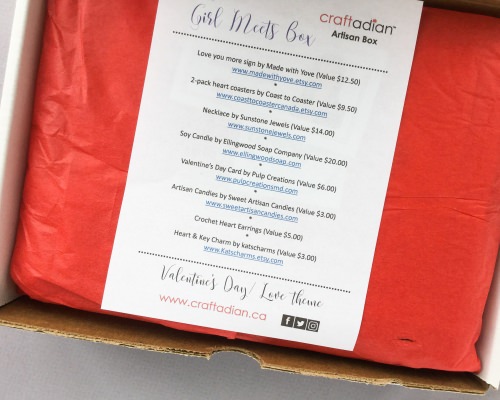 Girl Meets Box
craftadian™
Artisan Box
Love you more sign by Made with Yove (Value $12.50)
www.madewithyove.etsy.com
*
2-pack heart coasters by Coast to Coaster (Value $9.50)
www.coasttocoastercanada.etsy.com
*
Necklace by Sunstone Jewels (Value $14.00)
www.sunstonejewels.com
*
Soy Candle by Ellingwood Soap Company (Value $20.00)
www.ellingwoodsoap.com
*
Valentine's Day Card by Pulp Creations (Value $6.00)
www.pulpcreationsmd.com
*
Artisan Candies by Sweet Artisan Candies (Value $3.00)
www.sweetartisancandies.com
*
Crochet Heart Earrings (Value $5.00)
*
Heart & Key Charm by katscharms (Value $3.00)
www.Katscharms.etsy.com
Valentine's Day/ Love theme
www.craftadian.ca